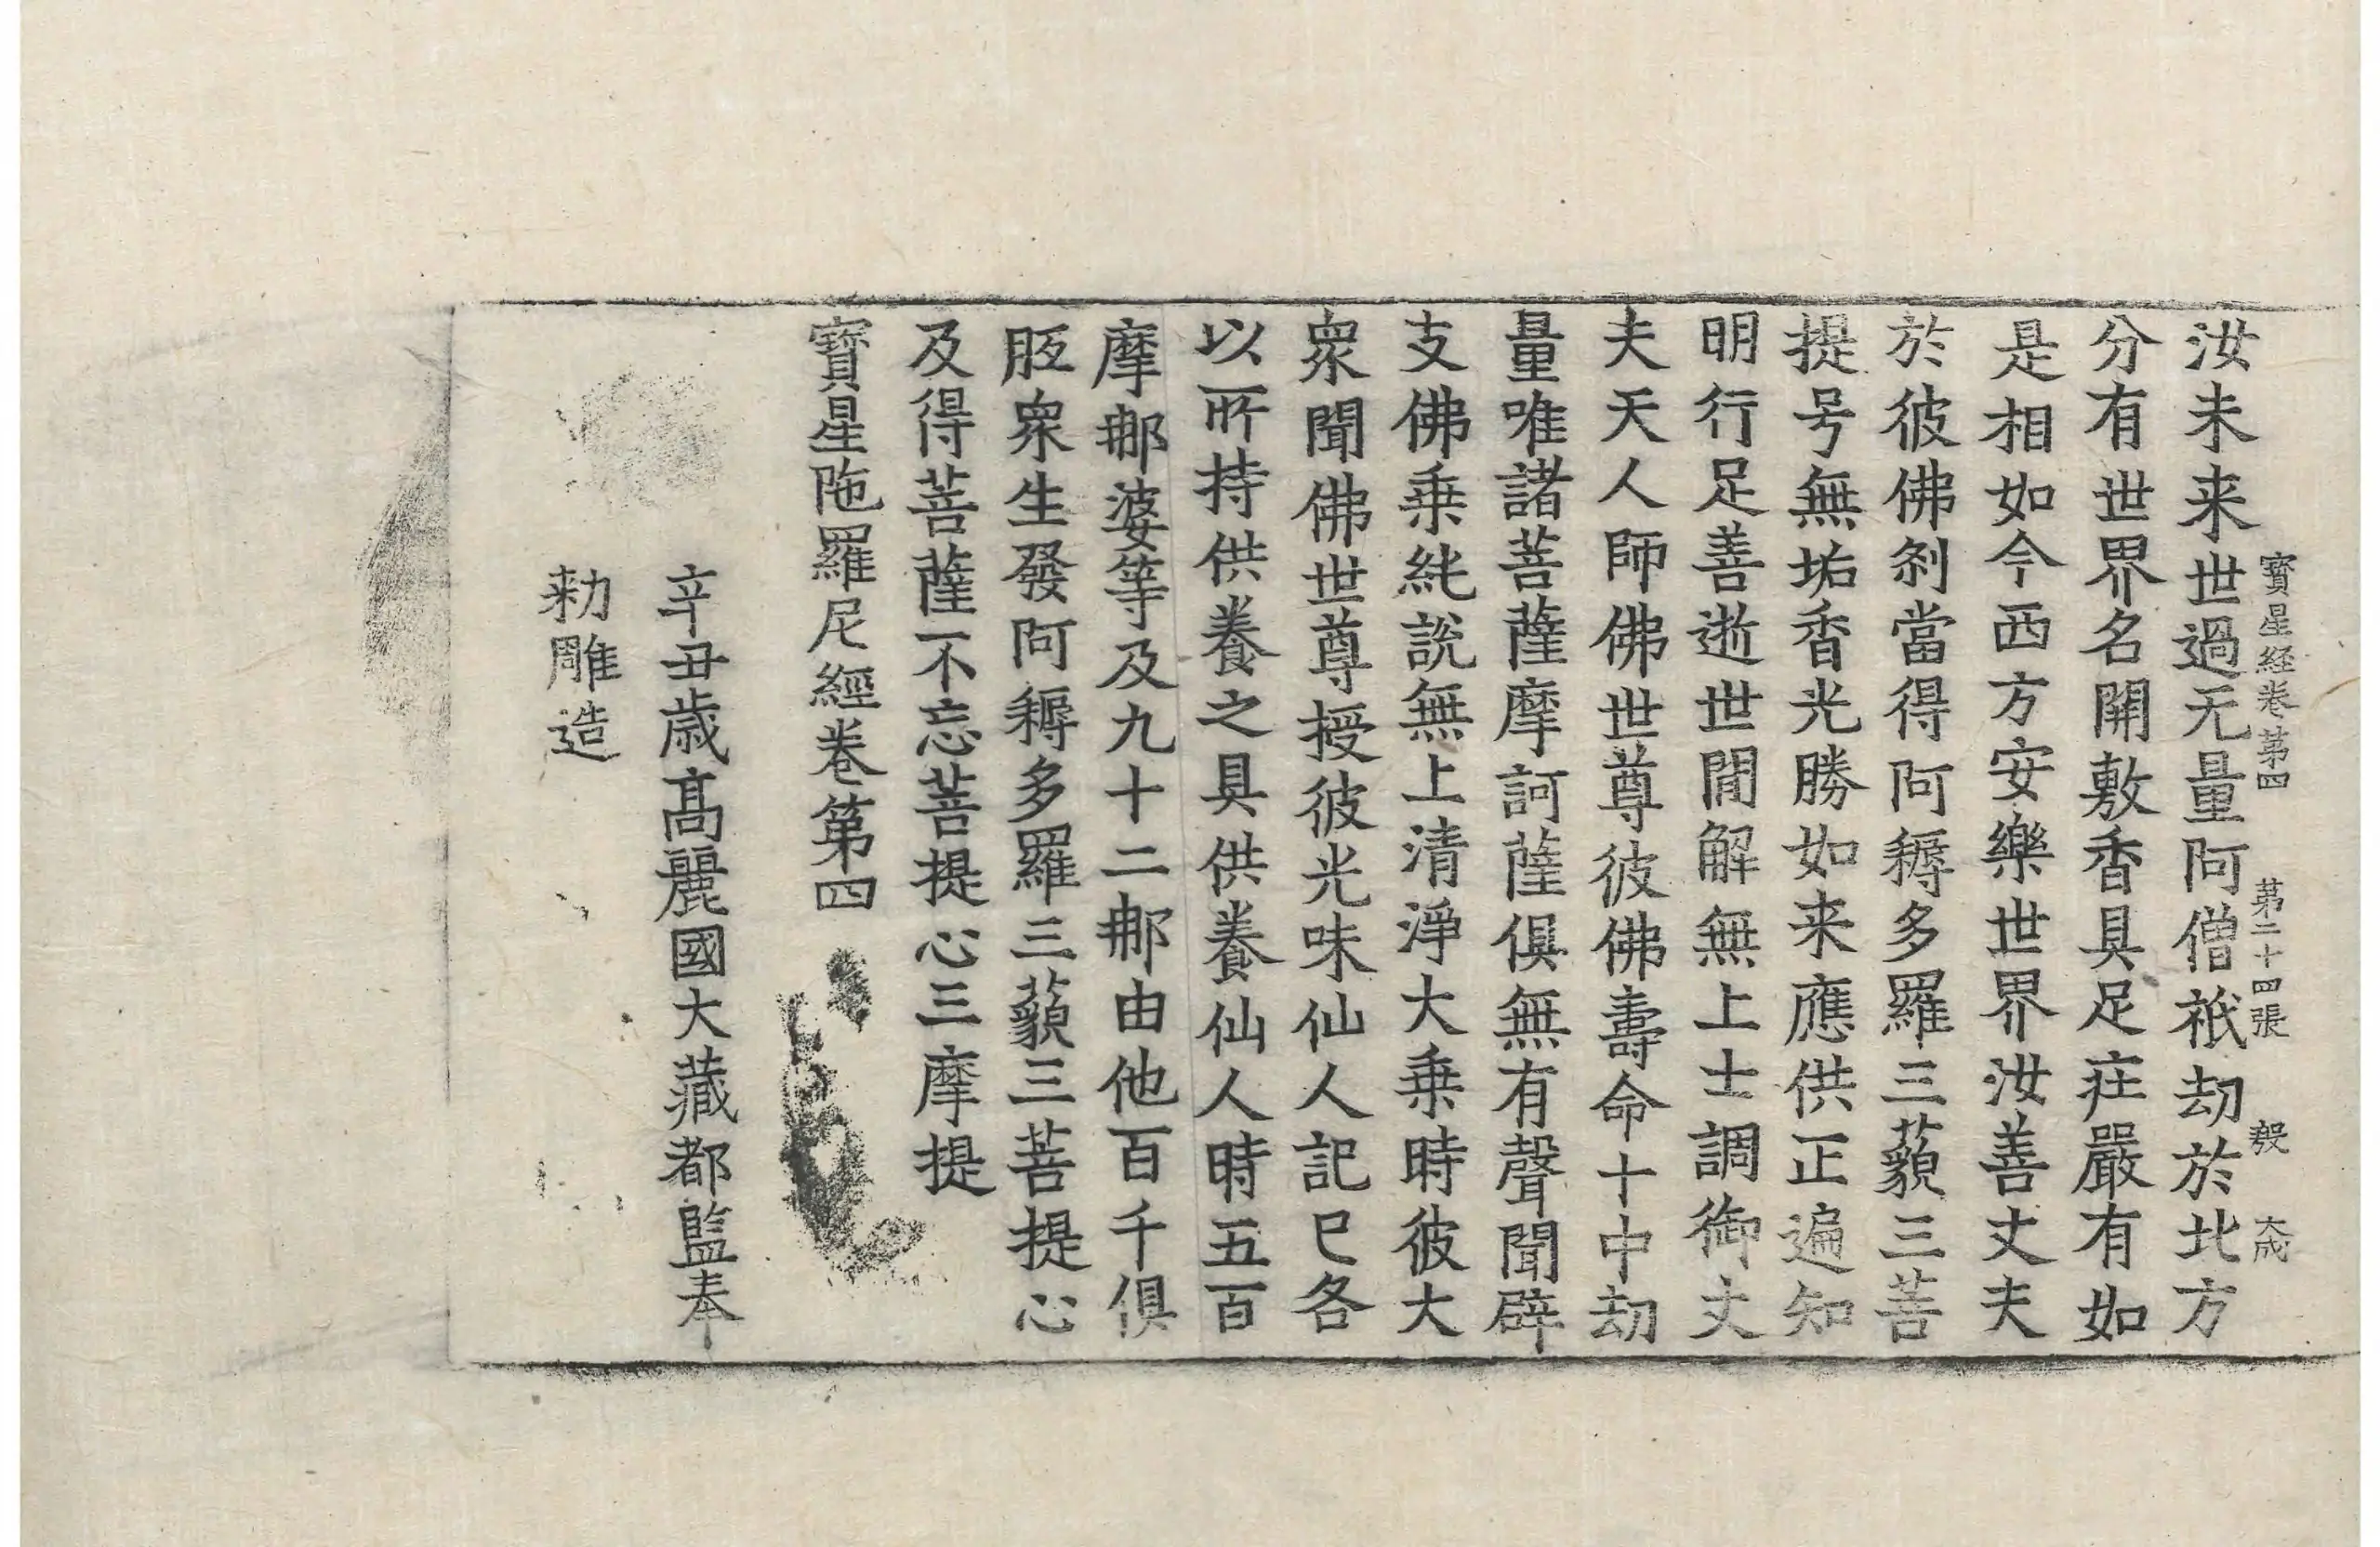 寳星経卷苐四 苐二十四張 㲉 大成
汝未来世過无量阿僧祇劫於北方
分有世界名開敷香具足疘嚴有如
是相如今西方安樂世界汝善丈夫
於彼佛刹當得阿耨多羅三藐三菩
提号無垢香光勝如来應供正遍知
明行足善逝世間解無上士調御丈
夫天人師佛世尊彼佛壽命十中劫
量唯諸菩薩摩訶薩俱無有聲聞辟
支佛乗純說無上清淨大乗時彼大
衆聞佛世尊授彼光味仙人記已各
以所持供養之具供養仙人時五百
摩那婆等及九十二那由他百千俱
胝衆生發阿耨多羅三藐三菩提心
及得菩薩不忘菩提心三摩提
寳星陁羅尼經卷第四
辛丑歳髙麗國大藏都監奉
勑雕造